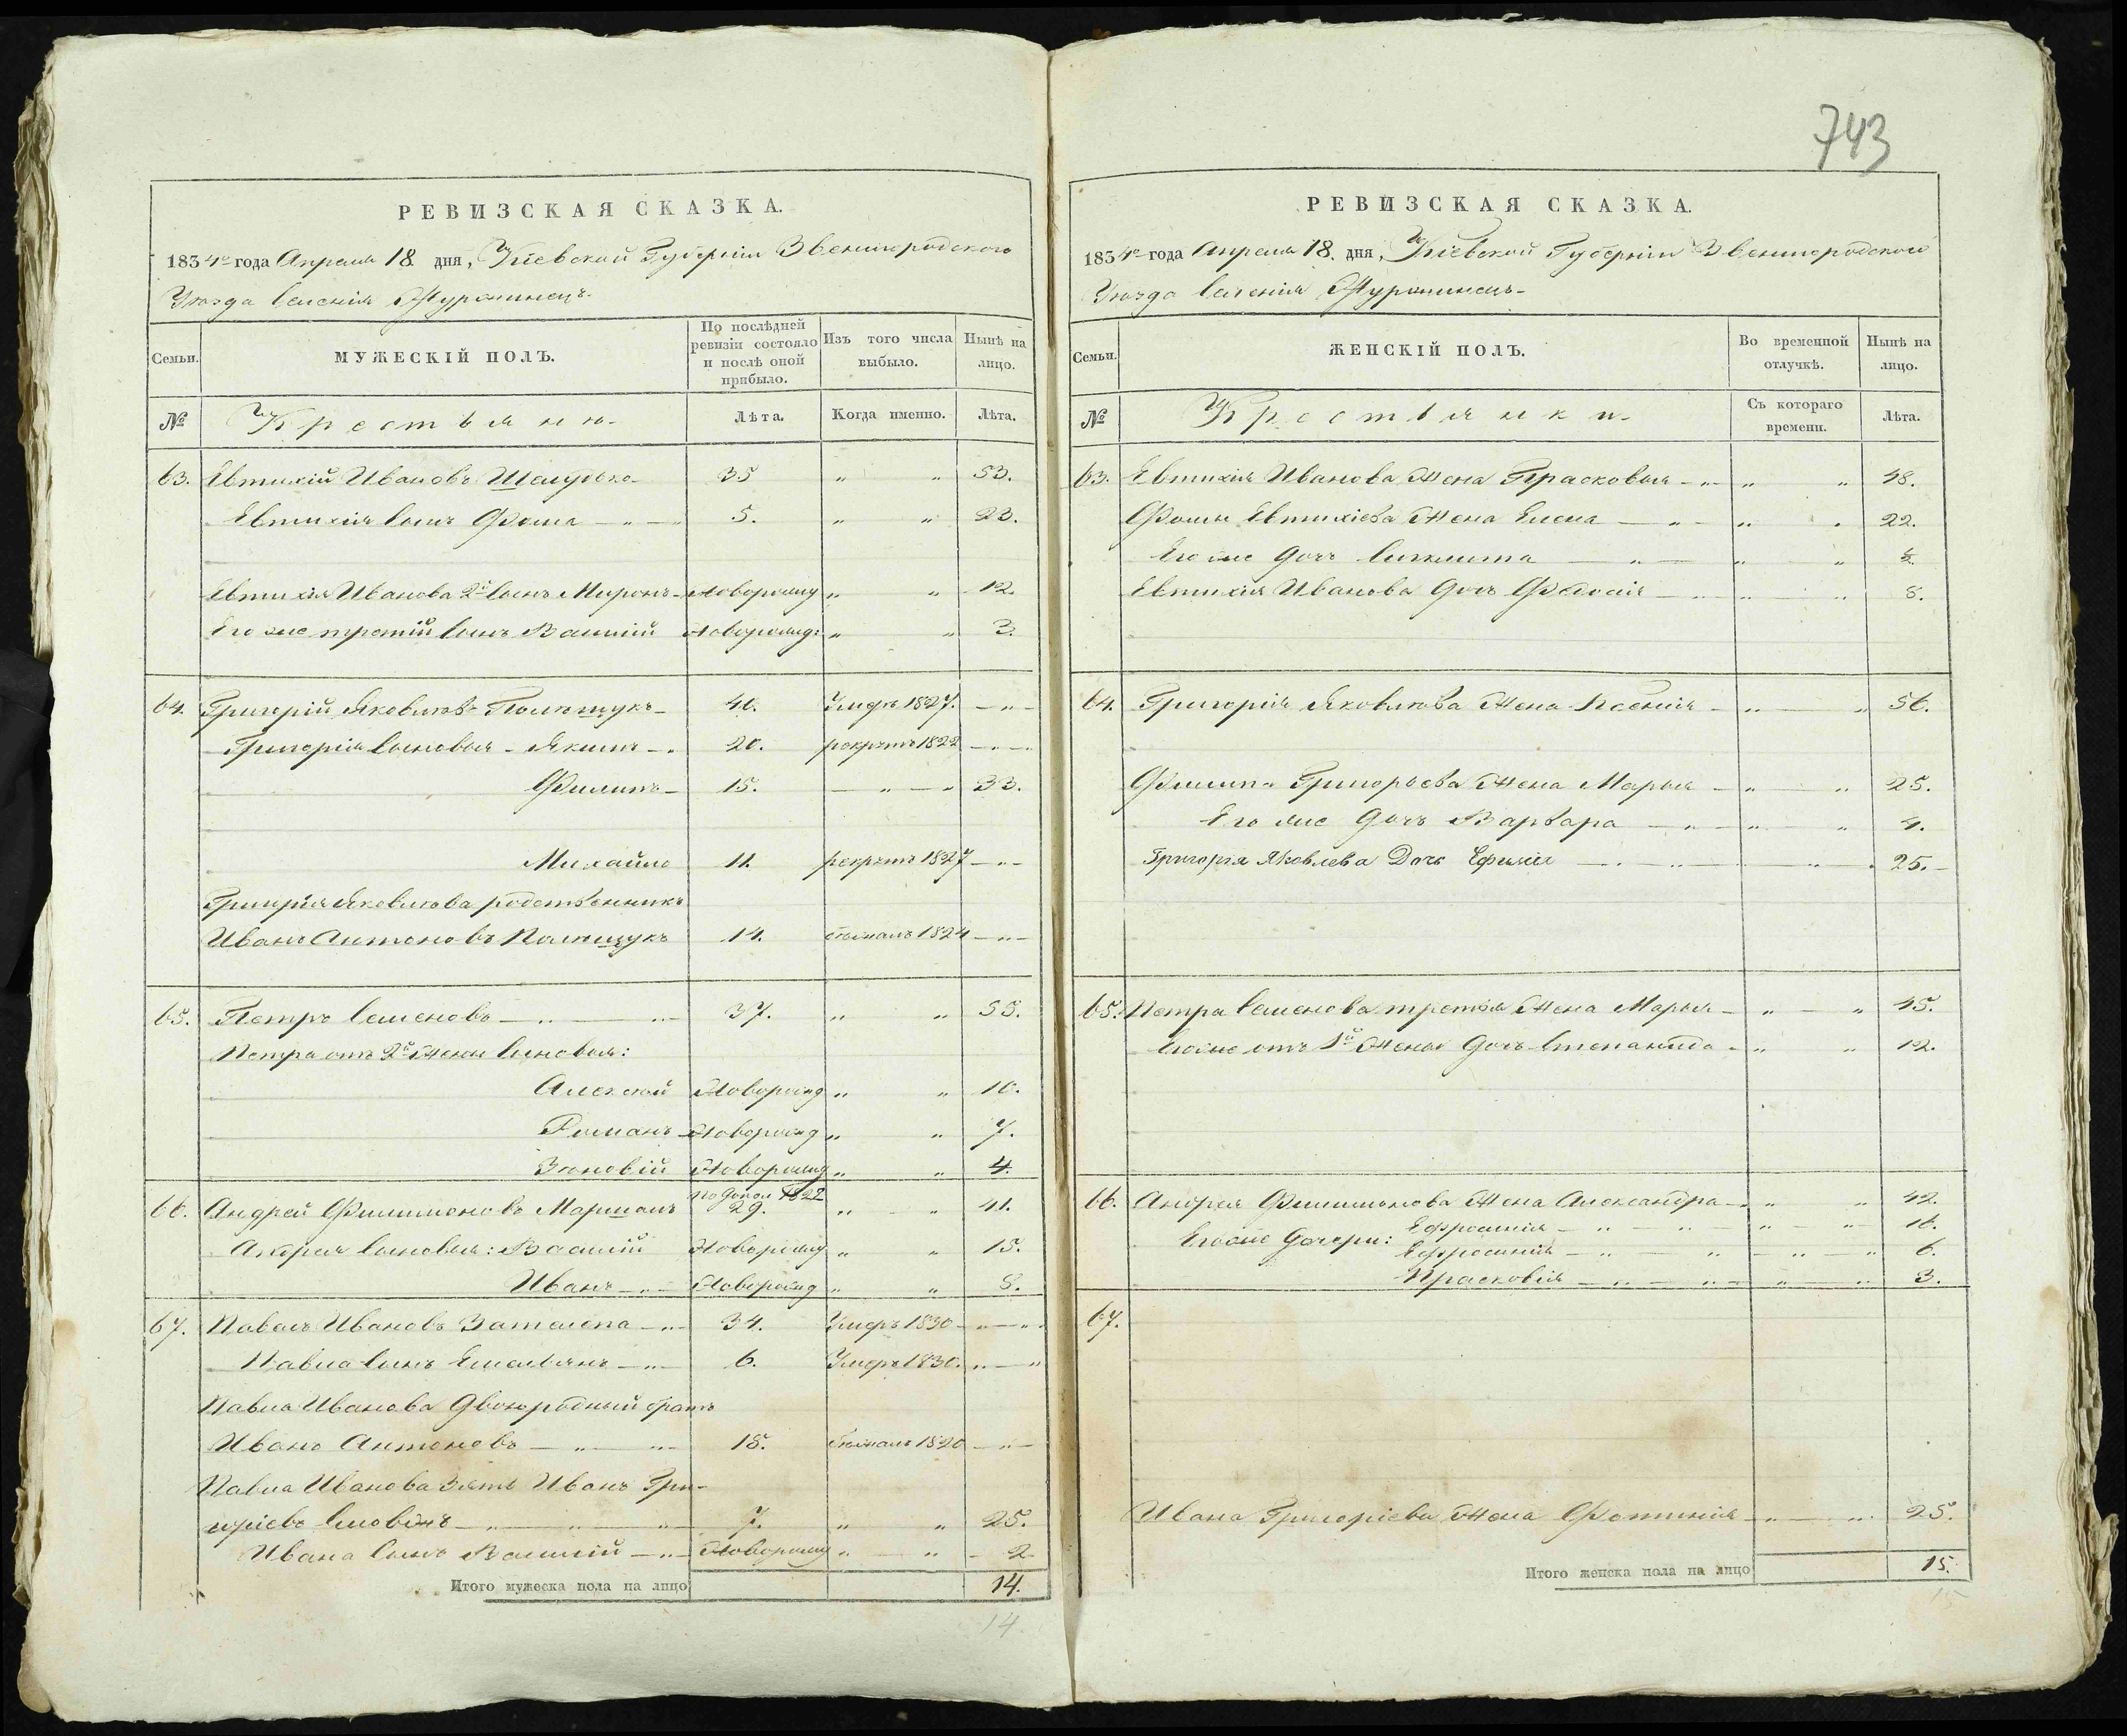 743
РЕВИЗСКАЯ СКАЗКА.
1834го года Апреля 18 дня, Кіевской Губерніи Звенигородского
Уезда Селенія Журжинецъ.
Семьи.
МУЖЕСКІЙ ПОЛЪ.
По послѣдней ревизіи состояло и послѣ оной прибыло.
Изъ того числа выбыло.
Нынѣ на лицо.
№
Крестьяне
Лѣта.
Когда именно.
Лѣта.
63. Евтихій Ивановъ 35 " " 53.
Евтихія Сынъ Фома — " — 5. " " 23.
Евтихія Иванова 2й Сынъ Миронъ Новорожд " " 12.
Его же третій Сынъ Василій Новорожд: " " 3.
64. Григорій Яковлевъ Полѣщукъ 40. Умеръ 1827. — " —
Григорія Сыновья Якимъ — " 20. рекрутъ 1822 — " —
Филипъ 15. — " — " 33.
Михайло 11. рекрутъ 1827 — " —
Григрія Яковлева родственникъ
Иванъ Антоновъ Полѣщукъ 14. бѣжалъ 1824 — " —
65. Петръ Семеновъ — " — " — 37. " " 55.
Петра отъ 2й Жены Сыновья:
Алексей Новорожд " " 10.
Романъ Новорожд " " 7.
Зѣновій Новорожд " " 4.
по допол 1822
66. Андрей Филимоновъ Маршалъ 29. " — " 41.
Андрея Сыновья: Василій Новорожд " " 15.
Иванъ — " — Новорожд " " 8.
67. Павелъ Ивановъ Заталепа — " — 34. Умеръ 1830 — " — "
Павла Сынъ Емельянъ — " — 6. Умеръ 1830. " — "
Павла Иванова двоюродный братъ
Иванъ Антоновъ — " — " — 15. бѣжалъ 1820 — " —
Павла Иванова Зять Иванъ Гри-
горіевъ — " — " — " — 7. " " 25.
Ивана Сынъ Василій — " — Новорожд " — " — 2
Итого мужеска пола на лицо 14.
14.
РЕВИЗСКАЯ СКАЗКА.
1834го года Апреля 18. дня, Кіевской Губерніи Звенигородского
Уезда Селенія Журжинецъ
Семьи.
ЖЕНСКІЙ ПОЛЪ.
Во временной отлучкѣ.
Нынѣ на лицо.
№
Крестьянки
Съ котораго времени.
Лѣта.
63. Евтихія Иванова Жена Прасковья — " — " " 48.
Фомы Евтихіева Жена Елена — " — " " 22.
Его же Дочь — " — " "
Евтихія Иванова Дочь Федосія — " — " " 8.
64. Григорія Яковлева Жена Ксенія — " — " 56.
Филипа Григорьева Жена Марья — " — " 25.
Его же Дочь Варвара — " — " " 4.
Григорія Яковлева Дочь Ефимія — " — " — " 25.
65. Петра Семенова третья Жена Марья — " — " 45.
Его же отъ 1й Жены Дочь Степанида — " " 12.
66. Андрея Филимонова Жена Александра — " " 42.
Его же Дочери: Ефросинія — " — " — " — " 16.
Ефросинія — " — " — " — " 6.
Прасковія — " — " — " — " 3.
67.
Ивана Григоріева Жена Фотинія — " — " 25.
Итого женска пола на лицо 15.
15